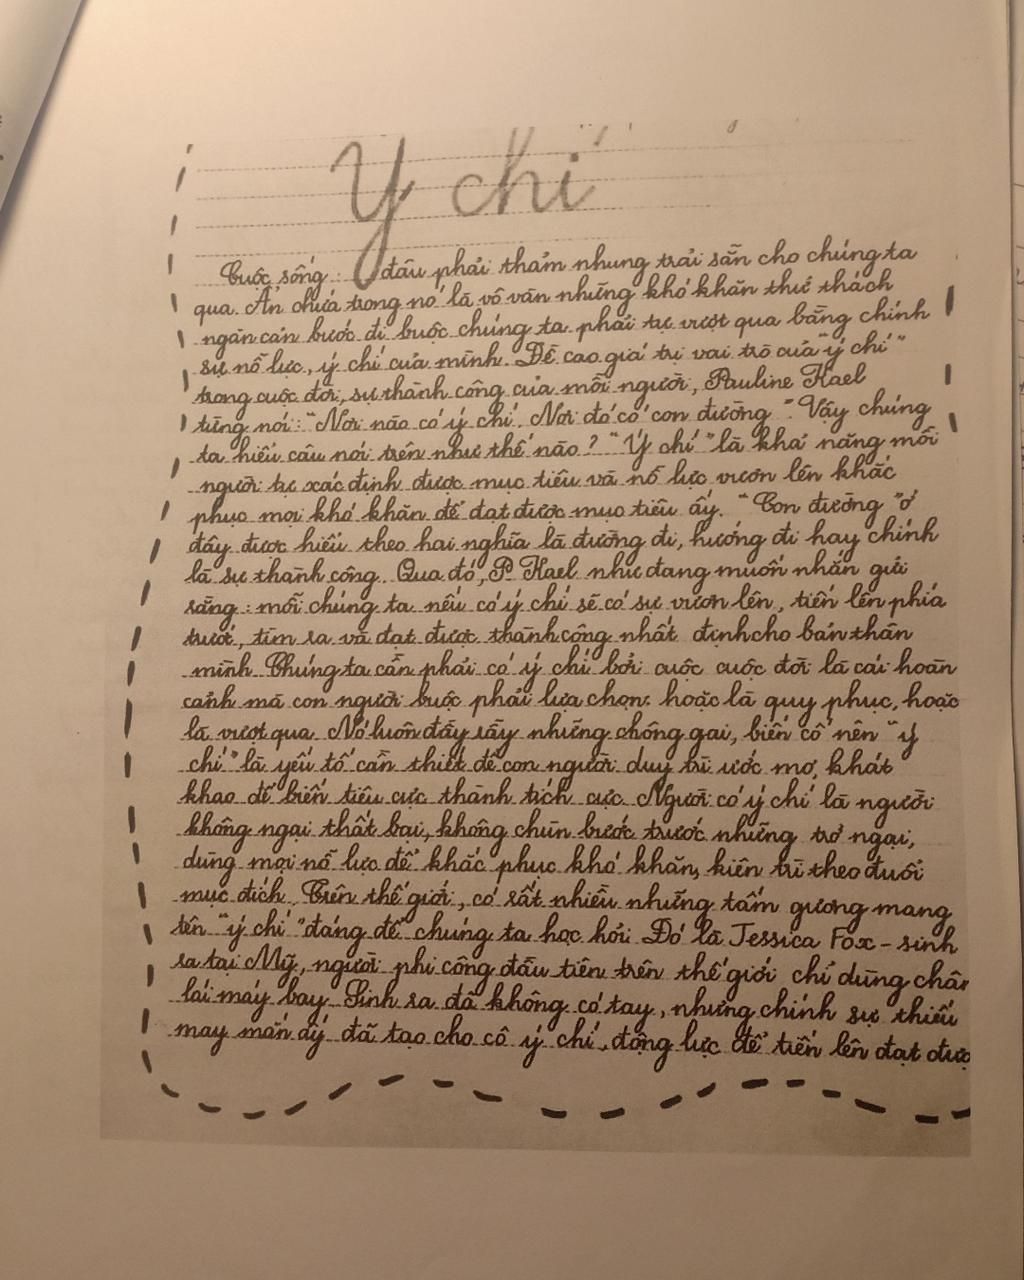 Ý chí
Cuộc sống đâu phải thảm nhung trải sẵn cho chúng ta
qua. Ẩn chứa trong nó là vô vàn những khó khăn thử thách
ngăn cản bước đi buộc chúng ta phải tự vượt qua bằng chính
sự nỗ lực, ý chí của mình. Đề cao giá trị vai trò của "ý chí"
trong cuộc đời, sự thành công của mỗi người, Pauline Kael
từng nói: "Nơi nào có ý chí, Nơi đó có con đường". Vậy chúng
ta hiểu câu nói trên như thế nào? "Ý chí" là khả năng mỗi
người tự xác định được mục tiêu và nỗ lực vươn lên khắc
phục mọi khó khăn để đạt được mục tiêu ấy. "Con đường" ở
đây được hiểu theo hai nghĩa là đường đi, hướng đi hay chính
là sự thành công. Qua đó, P. Kael như đang muốn nhắn gửi
rằng: mỗi chúng ta nếu có ý chí sẽ có sự vươn lên, tiến lên phía
trước, tìm ra và đạt được thành công nhất định cho bản thân
mình. Chúng ta cần phải có ý chí bởi cuộc cuộc đời là cái hoàn
cảnh mà con người buộc phải lựa chọn: hoặc là quy phục, hoặc
là vượt qua. Nó luôn đầy rẫy những chông gai, biến cố nên "ý
chí" là yếu tố cần thiết để con người duy trì ước mơ, khát
khao để biến tiêu cực thành tích cực. Người có ý chí là người
không ngại thất bại, không chùn bước trước những trở ngại,
dùng mọi nỗ lực để khắc phục khó khăn, kiên trì theo đuổi
mục đích. Trên thế giới, có rất nhiều những tấm gương mang
tên "ý chí" đáng để chúng ta học hỏi. Đó là Jessica Fox - sinh
ra tại Mỹ, người phi công đầu tiên trên thế giới chỉ dùng chân
lái máy bay. Sinh ra đã không có tay, nhưng chính sự thiếu
may mắn ấy đã tạo cho cô ý chí, động lực để tiến lên đạt được